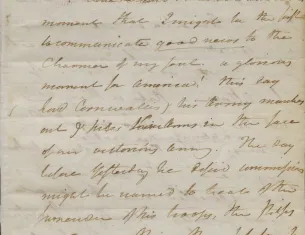 moment that I might be the first
to communicate good news to the
Charmer of my soul. a glorious
moment for America! this day
Lord Cornwallis & his Army marches
out & Piles their Arms in the face
of our victorious Army. The day
before Yesterday he desired commissioners
might be named to treat of the
surrender of his troops, their Ships